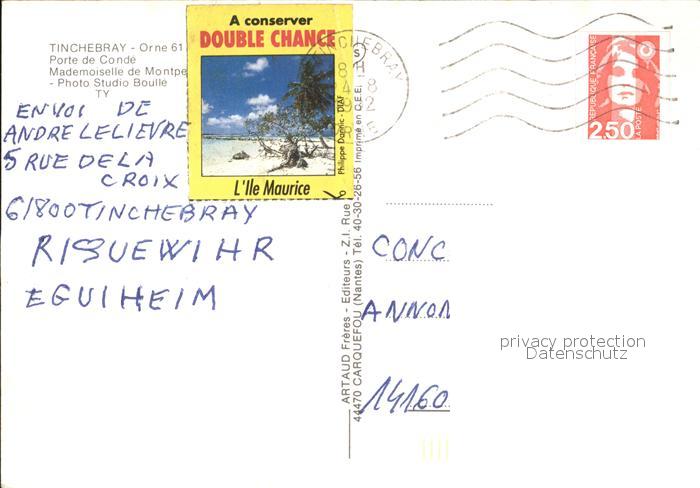 TINCHEBRAY - Orne 61.
Porte de Condé
Mademoiselle de Montpe
- Photo Studio Boullé
TY
A conserver
DOUBLE CHANCE
L'Ile Maurice
Philippe Dannic - DIAF
ENVOI DE
ANDRE LELIEVRE
5 RUE DE LA
CROIX
61800 TINCHEBRAY
RIQUEWIHR
EGUIHEIM
TINCHEBRAY
ARTAUD Frères - Editeurs - Z.I. Rue
44470 CARQUEFOU (Nantes) Tél. 40-30-26-56 Imprimé en C.E.E.
REPUBLIQUE FRANÇAISE
2,50
LA POSTE
CONC
ANNON
14160
privacy protection
Datenschutz